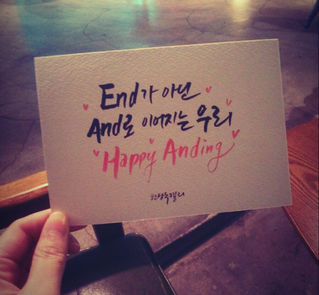 End가 아닌
And로 이어지는 우리
Happy Anding